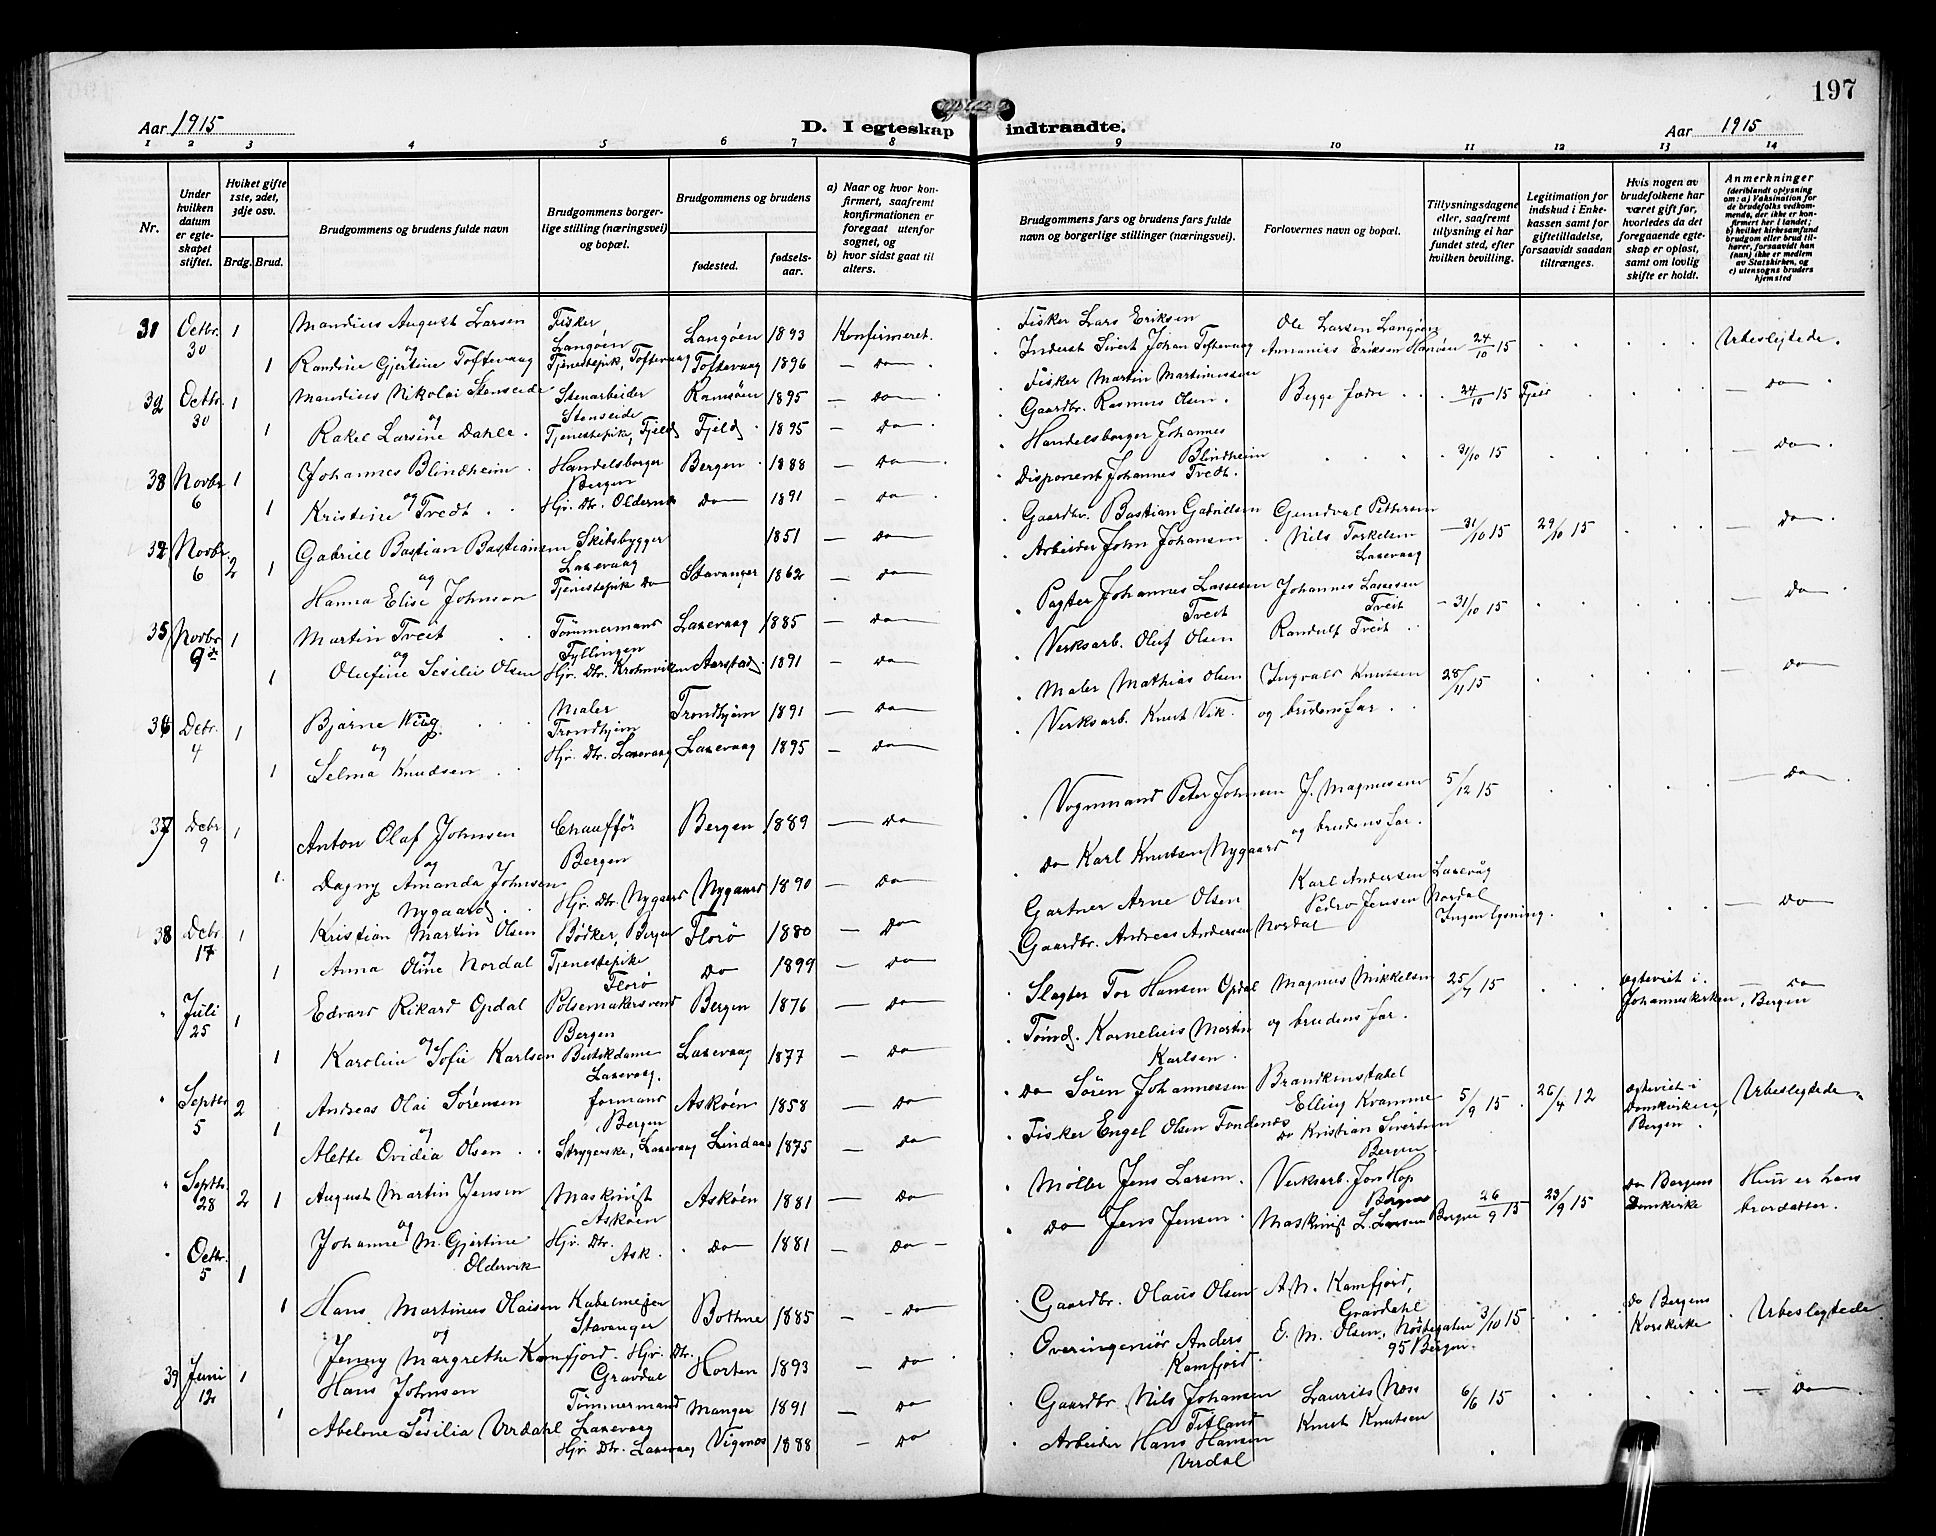 197
Aar 1915
D. I egteskap indtraadte.
Aar 1915
1 2 3 4 5 6 7 8 9 10 11 12 13 14
Nr.
Under hvilken datum er egteskapet stiftet.
Hviket gifte 1ste, 2det, 3dje osv.
Brdg. Brud.
Brudgommens og brudens fulde navn
Brudgommens borgerlige stilling (næringsvei) og bopæl.
Brudgommens og brudens
fødested.
fødselsaar.
a) Naar og hvor konfirmert, saafremt konfirmationen er foregaat utenfor sognet, og
b) hvor sidst gaat til alters.
Brudgommens fars og brudens fars fulde navn og borgerlige stillinger (næringsvei).
Forlovernes navn og bopæl.
Tillysningsdagene eller, saafremt tillysning ei har fundet sted, efter hvilken bevilling.
Legitimation for indskud i Enkekassen samt for giftetilladelse, forsaavidt saadan tiltrænges.
Hvis nogen av brudefolkene har været gift før, hvorledes da det foregaaende egteskap er opløst, samt om lovlig skifte er holdt.
Anmerkninger
(deriblandt oplysning om: a) Vaksination for de brudefolks vedkommende, der ikke er konfirmert her i landet; b) hvilket kirkesamfund brudgom eller brud tilhører, forsaavidt han (hun) ikke er medlem av Statskirken, og c) utensogns bruders hjemsted
31 Octbr. 30 1 Mandius August Larsen Fisker Langöen Langöen 1893 Konfirmeret. Fisker Lars Eriksen Ole Larsen Langöen 24/10 15 Ubeslegtede.
og 1 Randine Gjertine Toftevaag Tjenestepik, Toftevaag Toftevaag 1896 — do — Inderst Sivert Johan Toftevaag Annanias Eriksen Hanöen
32 Octbr. 30 1 Mandius Nikolai Stenseide Stenarbeider Stenseide Ramsöen 1895 — do — Fisker Martin Martinussen Begge fædre 24/10 15 Fjeld — do —
og 1 Rakel Larsine Dahle. Tjenestepik, Fjeld Fjeld 1895 — do — Gaardbr. Rasmus Olsen.
33 Novbr. 6 1 Johannes Blindheim Handelsborger Bergen Bergen 1888 — do — Handelsborger Johannes Blindheim 31/10 15 — do —
og 1 Kristine Tvedt Hjv. Dtr. do 1891 — do — Disponent Johannes Tvedt.
34 Novbr. 6 2 Gabriel Bastian Bastiansen Skibsbygger Laxevaag 1851 — do — Gaardbr. Bastian Gabrielsen Gundval Pettersen 31/10 15 29/10 15 — do —
og 1 Hanna Elise Johnson Tjenestepike do Stavanger 1862 — do — Arbeider John Johansen Nils Torkelsen Laxevaag
35 Novbr. 9de 1 Martin Tveit Tömmermand Fyllingen Laxevaag 1885 — do — Pagter Johannes Lassesen Tveit Johannes Lassesen Tveit 31/10 15 — do —
og 1 Olufine Sesilie Olsen Hjv. Dtr. Krohnviken Aarstad. 1891 — do — Verksarb. Oluf Olsen Randulf Tveit
36 Decbr. 4 1 Bjarne Wiig. Maler Trondhjem Trondhjem 1891 — do — Maler Mathias Olsen Ingvald Knutsen 28/11 15 — do —
og 1 Selma Knudsen Hjv. Dtr. Laxevaag Laxevaag 1895 — do — Verksarb. Knut Vik. og brudens far.
37 Decbr. 9 1 Anton Olaf Johnsen Chaufför Bergen Bergen 1889 — do — Vognmand Peter Johnsen J. Magnussen 5/12 15 — do —
og 1. Dagny Amanda Johnsen Nygaard. Hjv. Dtr. Nygaard Nygaard 1890 — do — do Karl Knutsen Nygaard og brudens far.
38 Decbr. 17 1 Kristian Martin Olsen Bödker, Bergen Florö 1880 — do — Gartner Arne Olsen Karl Andersen Laxevåg Ingen lysning. — do —
og 1 Anna Oline Nordal Tjenestepike Florö do 1899 — do — Gaardbr. Andreas Andersen Nordal Pedro Jensen Nordal
" Juli 25 1 Edvard Rikard Opdal Pölsemakersvend Bergen Bergen 1876 — do — Slagter Tor Hansen Opdal Magnus Mikkelsen 25/7 15 egteviet i Johanneskirken, Bergen — do —
og 1 Karoline Sofie Karlsen Butikdame Laxevaag. Laxevaag 1877 — do — Tömd. Kornelius Martin Karlsen. og brudens far.
" Septbr. 5 2 Andreas Olai Sörensen formand Bergen Askøen 1858 — do — do Sören Johannessen Brandkonstabel Elling Kvamme 5/9 15. 26/4 12 egteviet i Domkirken, Bergen. Ubeslegtede.
og 1 Alette Ovidia Olsen Strygerske, Laxevaag Lindaas 1875 — do — Fisker Engel Olsen Fondenes do Kristian Sivertsen Bergen.
" Septbr. 28 2 1 August Martin Jensen Maskinist Askøen Askøen 1881 — do — Möller Jens Larsen. Verksarb. Jon Hop Bergen 26/9 15 23/9 15 do Bergens Domkirke Hun er hans brordatter.
og Johanne M. Gjertine Oldervik Hjv. Dtr. Ask. do 1881 — do — do Jens Jensen. Maskinist L. Larsen Bergen
" Octbr. 5 1 Hans Martinus Olaisen Kabelmejer Stavanger Bothne 1885 — do — Gaardbr. Olaus Olsen A. N. Kamfjord, Gravdahl 3/10 15 do Bergens Korskirke Ubeslegtede
og 1 Jenny Margrethe Kamfjord. Hjv. Dtr. Gravdal Horten 1893 — do — Overingeniör Anders Kamfjord. E. M. Olsen, Nöstegaten 95 Bergen.
39 Juni 12 1 Hans Johnsen Tömmermand Laxevaag Manger 1891 — do — Gaardbr. Nils Johansen Titland Laurits Noss 6/6 15 — do —
og 1 Abelone Sesilia Urdahl Hjv. Dtr. Laxevaag Vigenes 1888 — do — Arbeider Hans Hansen Urdal Knut Knutsen